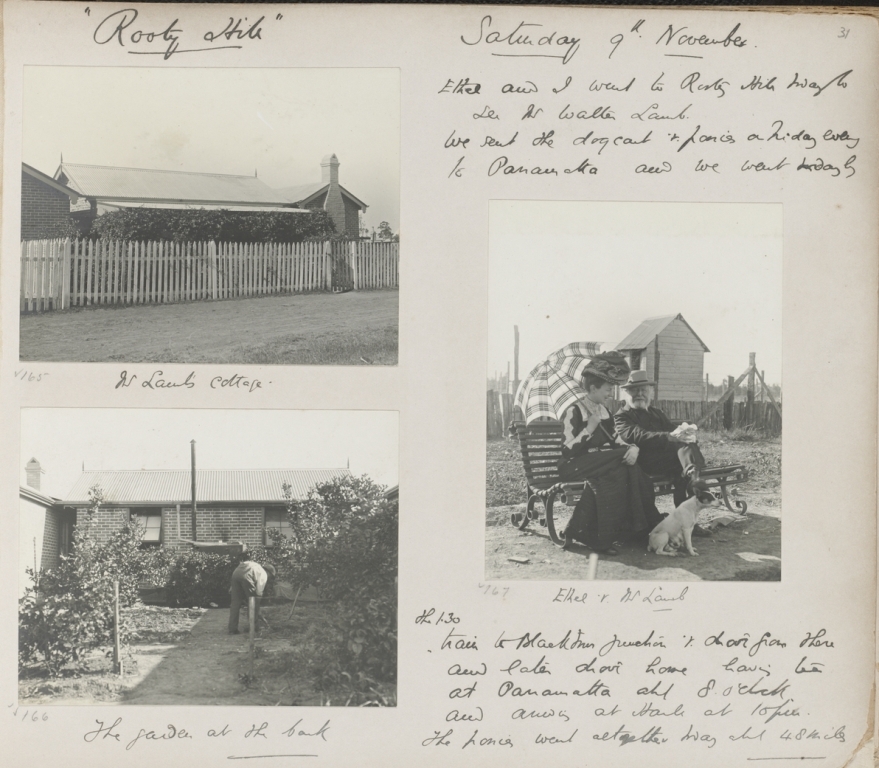 "Rooty Hill"
Saturday 9th November.
31
Ethel and I went to Rooty Hill today to
see Mr Walter Lamb.
We sent the dogcart & ponies on Friday evening
to Parramatta and we went today by
165
Mr Lamb's cottage.
166
The garden at the back
167
Ethel & Mr Lamb
the 1.30
train to Blacktown Junction & drove from there
and later drove home having tea
at Parramatta abt 8 o'clock
and arriving at at 10 p.m.
The ponies went altogether today abt 48 miles